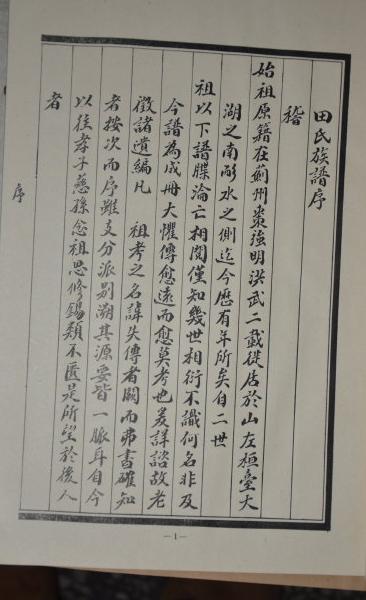 田氏族譜序
稽
始祖原籍在薊州棗強明洪武二載從居於山左桓臺大
湖之南郙水之側迄今歷有年所矣自二世
祖以下譜牒淪亡相閱僅知幾世相衍不識何名非及
今譜為成冊大懼傳愈遠而愈莫考也爰詳諮故老
徵諸遺編凡 祖考之名諱失傳者闕而弗書確知
者按次而序雖支分派別溯其源要皆一脈耳自今
以往孝子慈孫念祖思修錫類不匱是所望於後人
者
序
—1—